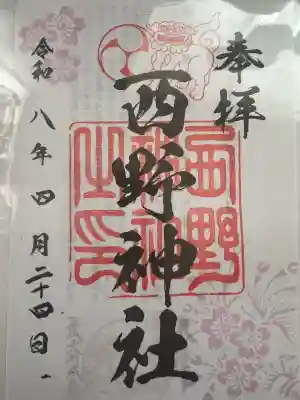 奉拝
西野神社
西野神社之印
令和八年四月二十四日